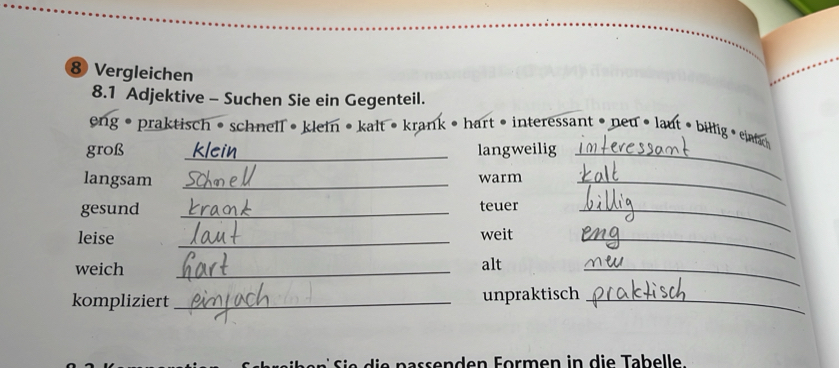 8 Vergleichen
8.1 Adjektive – Suchen Sie ein Gegenteil.
eng • praktisch • schnell • klein • kalt • krank • hart • interessant • neu • laut • billig • einfach
groß klein langweilig interessant
langsam schnell warm kalt
gesund krank teuer billig
leise laut weit eng
weich hart alt neu
kompliziert einfach unpraktisch praktisch
8.2 Komparation – Schreiben Sie die passenden Formen in die Tabelle.